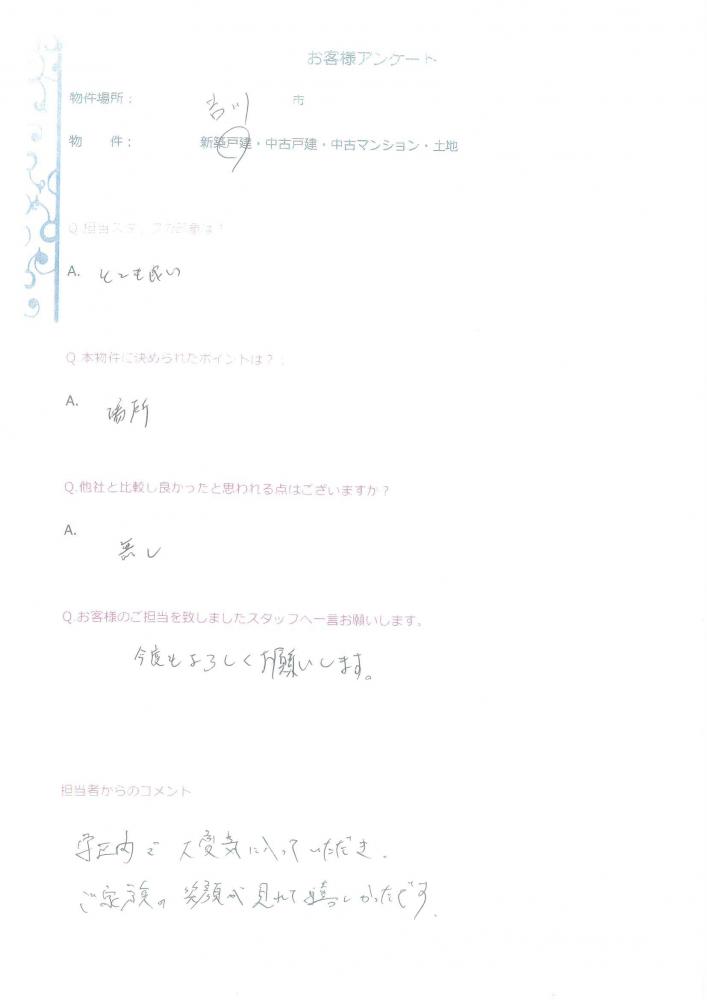 お客様アンケート
物件場所： 吉川 市
物 件： 新築戸建・中古戸建・中古マンション・土地
Q.担当スタッフの印象は？
A. とても良い
Q.本物件に決められたポイントは？：
A. 場所
Q.他社と比較し良かったと思われる点はございますか？
A. 無し
Q.お客様のご担当を致しましたスタッフへ一言お願いします。
今度もよろしくお願いします。
担当者からのコメント
学区内で大変気に入っていただき、
ご家族の笑顔が見れて嬉しかったです。